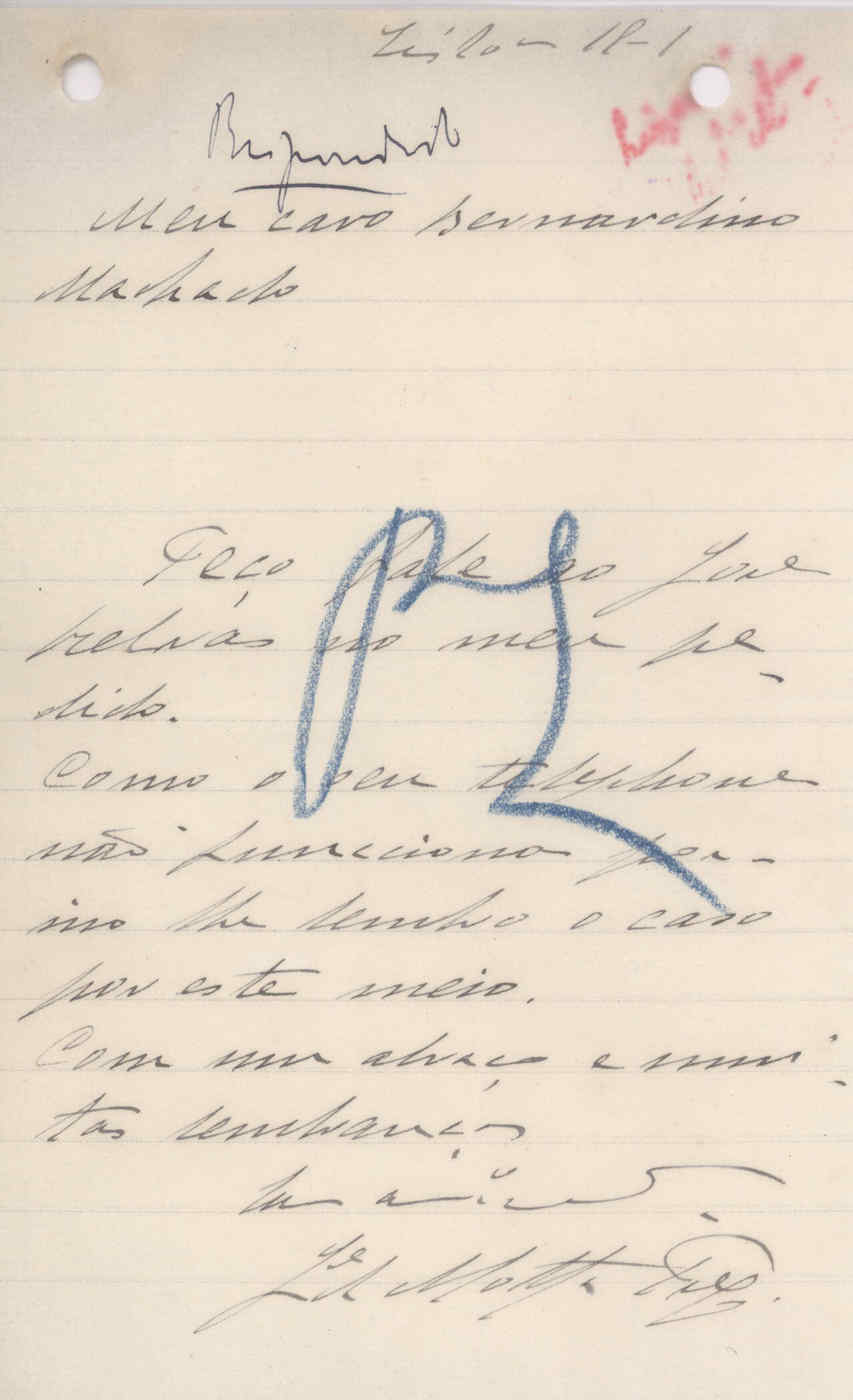 Lisboa 18-1
Respondido
Meu caro Bernardino
Machado
Peço fale ao José
Relvas no meu pe-
dido.
Como o seu telephone
não funcciona por
isso lhe lembro o caso
por este meio.
Com um abraço e mui-
tas lembranças
José d Motta